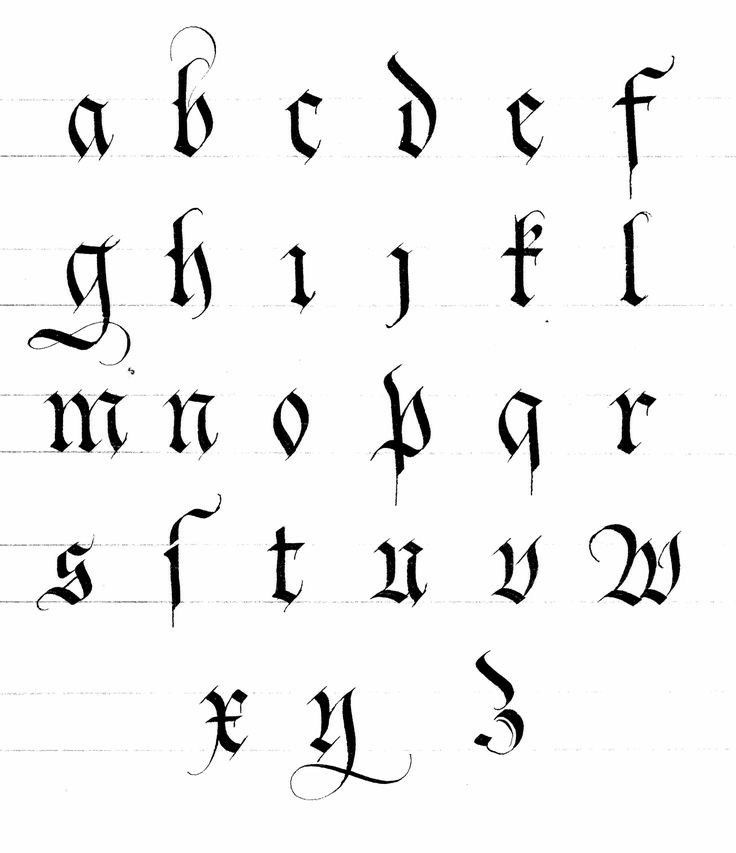 a b c d e f
g h ı ȷ k l
m n o p q r
s ſ t u v w
x y z